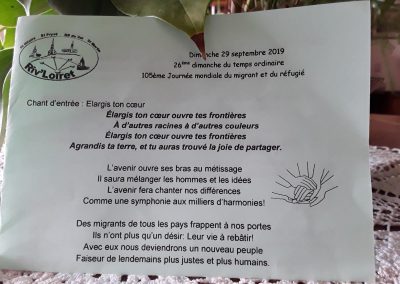 Riv'Loiret
Dimanche 29 septembre 2019
26ème dimanche du temps ordinaire
105ème Journée mondiale du migrant et du réfugié
Chant d'entrée : Elargis ton cœur
Élargis ton cœur ouvre tes frontières
À d'autres racines à d'autres couleurs
Élargis ton cœur ouvre tes frontières
Agrandis ta terre, et tu auras trouvé la joie de partager.
L'avenir ouvre ses bras au métissage
Il saura mélanger les hommes et les idées
L'avenir fera chanter nos différences
Comme une symphonie aux milliers d'harmonies!
Des migrants de tous les pays frappent à nos portes
Ils n'ont plus qu'un désir: Leur vie à rebâtir!
Avec eux nous deviendrons un nouveau peuple
Faiseur de lendemains plus justes et plus humains.